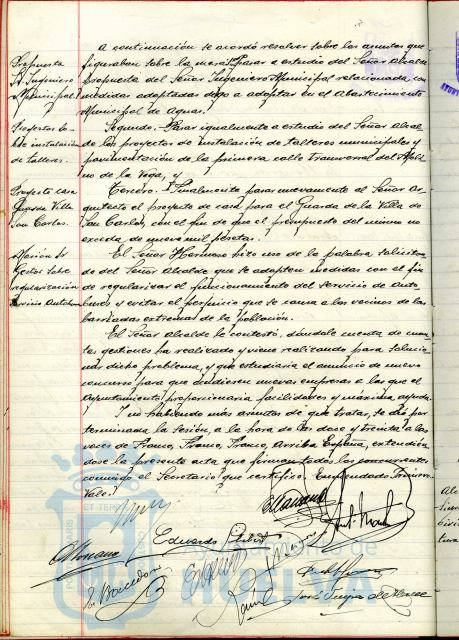 A continuación se acordó resolver sobre los asuntos que
figuraban sobre la mesa: Pasar a estudio del Señor Alcalde
propuesta del Señor Ingeniero Municipal relacionada con
medidas adoptadas o a adoptar en el Abastecimiento
Municipal de Aguas.
Segundo.- Pasar igualmente a estudio del Señor Alcal-
de los proyectos de instalación de talleres municipales y
pavimentación de la primera calle Transversal del Moli-
no de la Vega, y
Tercero.- Finalmente pasar nuevamente al Señor Ar-
quitecto el proyecto de casa para el Guarda de la Villa de
San Carlos, con el fin de que el presupuesto del mismo no
exceda de nueve mil pesetas.
El Señor Hermoso hizo uso de la palabra solicitan-
do del Señor Alcalde que se adopten medidas con el fin
de regularizar el funcionamiento del servicio de Auto-
buses y evitar el perjuicio que se causa a los vecinos de las
barriadas extremas de la población.
El Señor Alcalde le contestó, dándole cuenta de cuan-
tas gestiones ha realizado y viene realizando para solucio-
nar dicho problema, y que estudiaría el anuncio de nuevo
concurso para que acudiesen nuevas empresas a las que el
Ayuntamiento proporcionaría facilidades y máxima ayuda.
Y no habiendo más asuntos de que tratar, se dió por
terminada la sesión, a la hora de las doce y treinta a las
voces de Franco, Franco, Franco, Arriba España, extendién-
dose la presente acta que firman todos los concurrentes
conmigo el Secretario que certifico. Enmendado: Primero.
Vale.
Propuesta
Sr. Ingeniero
Municipal.
Proyectos so-
bre instalación
de talleres.
Proyecto casa
Guarda Villa
San Carlos.
Moción Sr.
sobre
regularización
servicio Autobuses
Eduardo
Ayuntamiento de
HUELVA